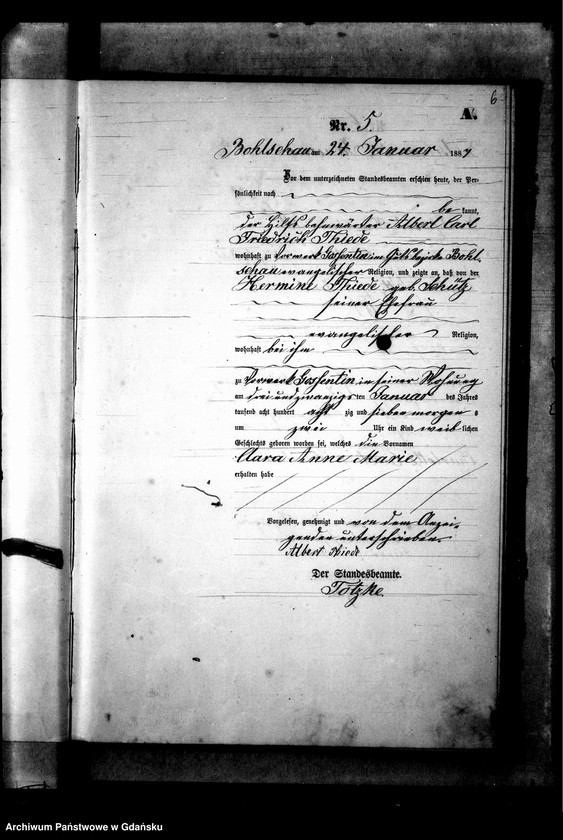 6
A.
Nr. 5.
Bohlschau am 24. Januar 1887
Vor dem unterzeichneten Standesbeamten erschien heute, der Per-
sönlichkeit nach
be kannt,
der Hilfsbahnwärter Albert Carl
Friedrich Thiede
wohnhaft zu Vorwerk Gossentin im Gutsbezirk Bohl-
schau evangelischer Religion, und zeigte an, daß von der
Hermine Thiede geb. Schütz
seiner Ehefrau
evangelischer Religion,
wohnhaft bei ihm
zu Vorwerk Gossentin in seiner Wohnung
am dreiundzwanzigsten Januar des Jahres
tausend acht hundert acht zig und sieben morgens
um zwei Uhr ein Kind weib lichen
Geschlechts geboren worden sei, welches die Vornamen
Clara Anne Marie
erhalten habe
Vorgelesen, genehmigt und von dem Anzei-
genden unterschrieben
Albert Thiede
Der Standesbeamte.
Totzke.
Archiwum Państwowe w Gdańsku